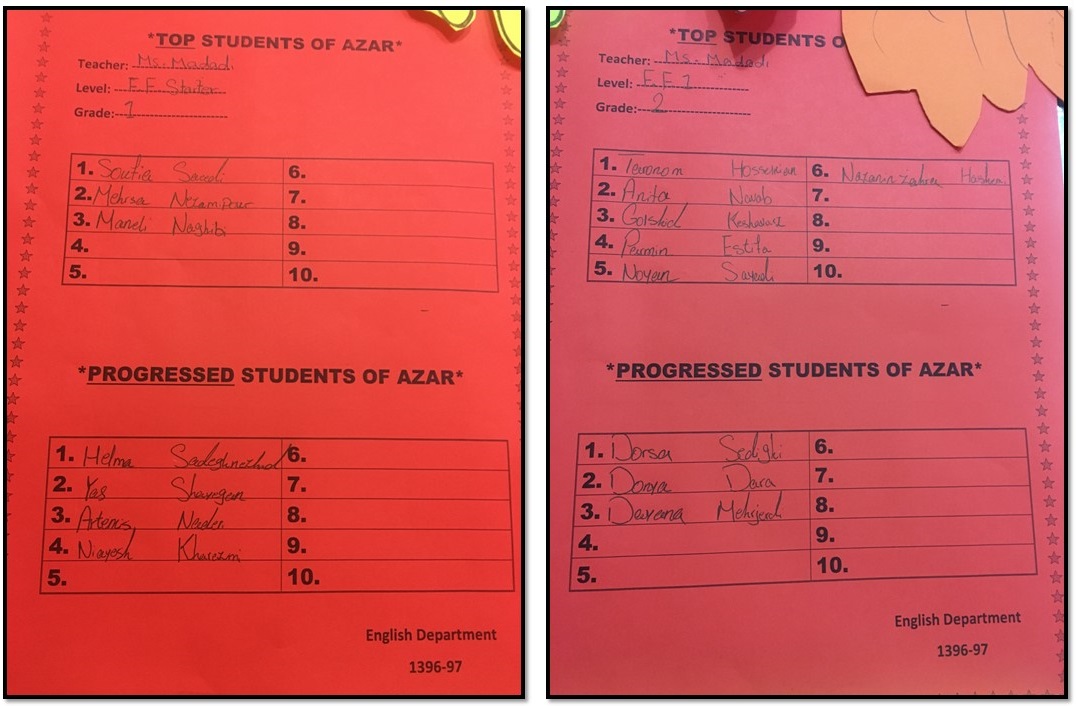 *TOP STUDENTS OF AZAR*
Teacher: Ms. Madadi
Level: E.F. Starter
Grade: 1
1. Soufia Saeedi 6.
2. Mehrsa Nezamipour 7.
3. Maneli Naghibi 8.
4. 9.
5. 10.
*PROGRESSED STUDENTS OF AZAR*
1. Helma Sadeghnezhad 6.
2. Yas 7.
3. Artemis 8.
4. Niayesh Kharezmi 9.
5. 10.
English Department
1396-97
*TOP STUDENTS O
Teacher: Ms. Madadi
Level: E.F 1
Grade: 2
1. Hosseinian 6. Nazaninzahra Hashemi
2. Anita Navab 7.
3. Keshavarz 8.
4. Estifa 9.
5. 10.
*PROGRESSED STUDENTS OF AZAR*
1. Dorsa Sedighi 6.
2. Donya Dara 7.
3. Mehrjerdi 8.
4. 9.
5. 10.
English Department
1396-97